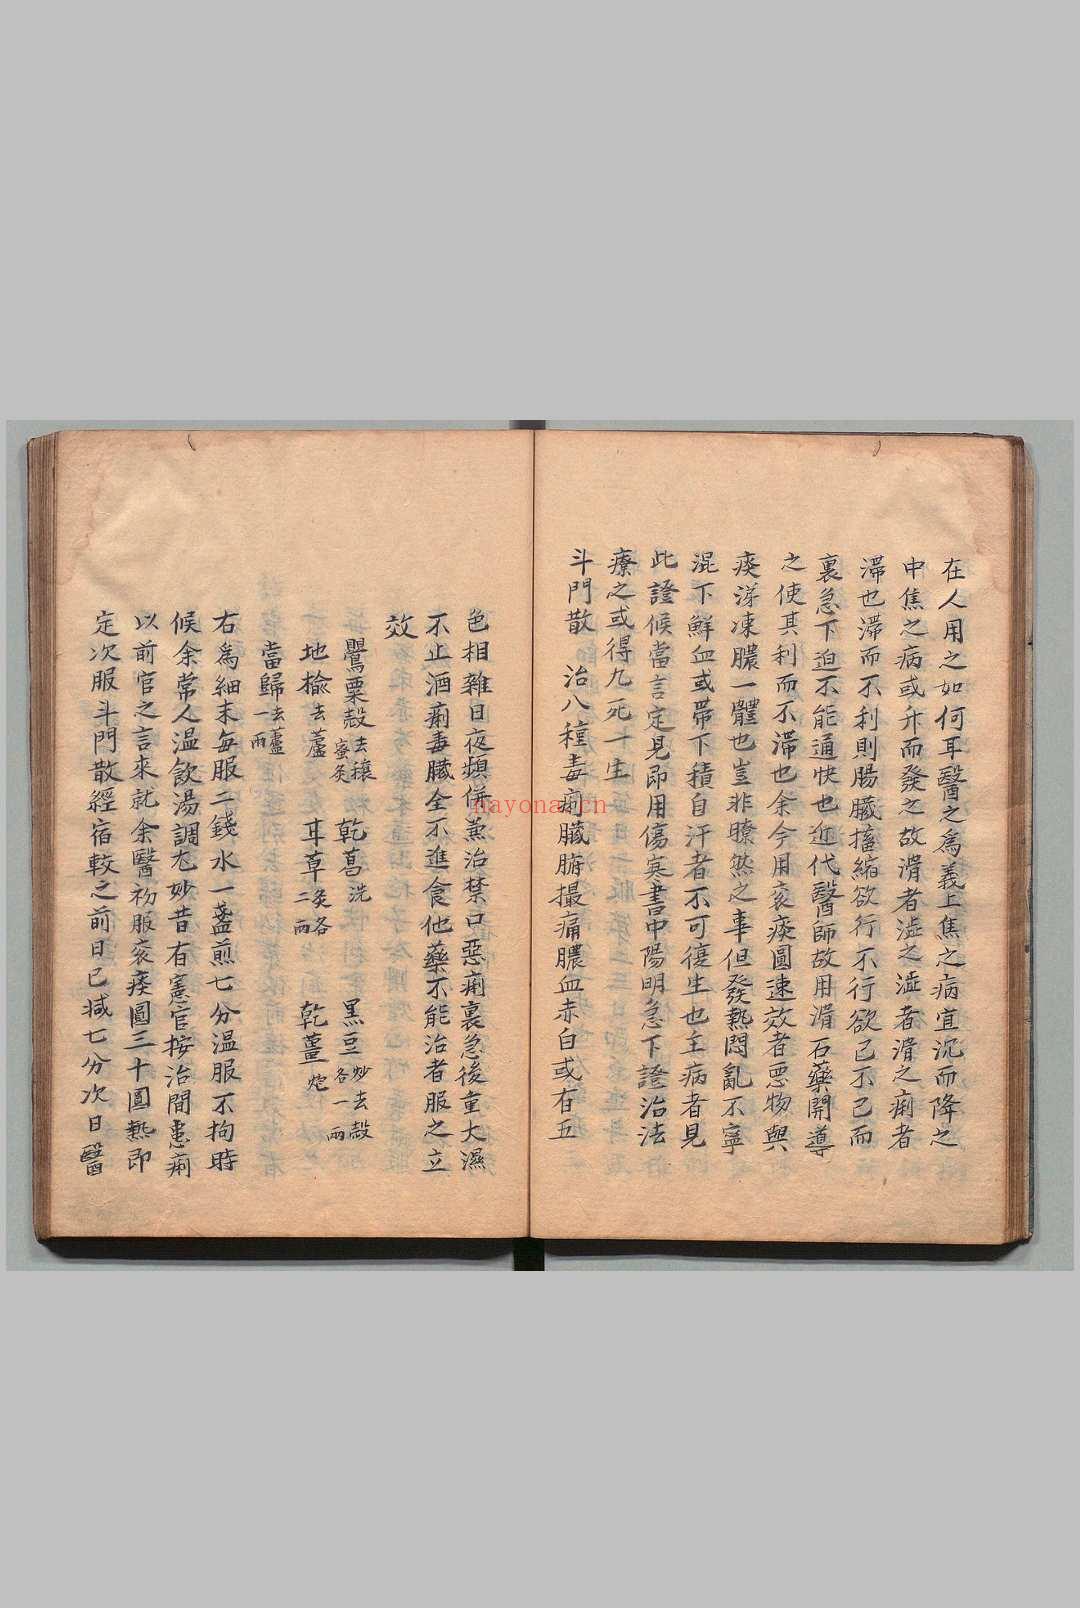 在人用之如何耳醫之為義上焦之病宜沉而降之
中焦之病或升而發之故滑者澁之澁者滑之痢者
滯也滯而不利則腸臟搐縮欲行不行欲已不已而
裏急下迫不能通快也近代醫師故用滑石藥開導
之使其利而不滯也余今用痰圓速效者惡物與
痰涕凍膿一體也豈非瞭然之事但發熱悶亂不寧
混下鮮血或帶下積自汗者不可復生也主病者見
此證候當言定見即用傷寒書中陽明急下證治法
療之或得九死一生
斗門散 治八種毒痢臟腑撮痛膿血赤白或有五
色相雜日夜頻併兼治禁口惡痢裏急後重大濕
不止酒痢毒臟全不進食他藥不能治者服之立
效
鸎粟殼去穰蜜炙 乾葛洗 黒豆炒去殼各一兩
地榆去蘆 耳草炙各二兩 乾薑炮
當歸去蘆一兩
右為細末每服二錢水一盞煎七分温服不拘時
候余常人温飲湯調尤妙昔有憲官按治間患痢
以前官之言來就余醫初服痰圓三十圓熱即
定次服斗門散經宿較之前日已減七分次日醫
nayona.cn